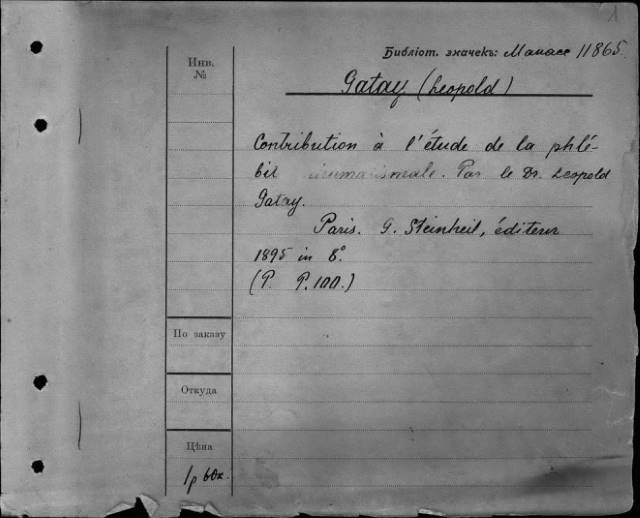 Библіот. значекъ: Манасе 11865.
Инв.
№
Gatay (Leopold)
Contribution à l'étude de la phlé-
bit
. Par le Dr. Leopold
Gatay.
Paris. G. Steinheil, éditeur
1895 in 8°.
(P. P. 100.)
По заказу
Откуда
Цѣна
1 р 60к.